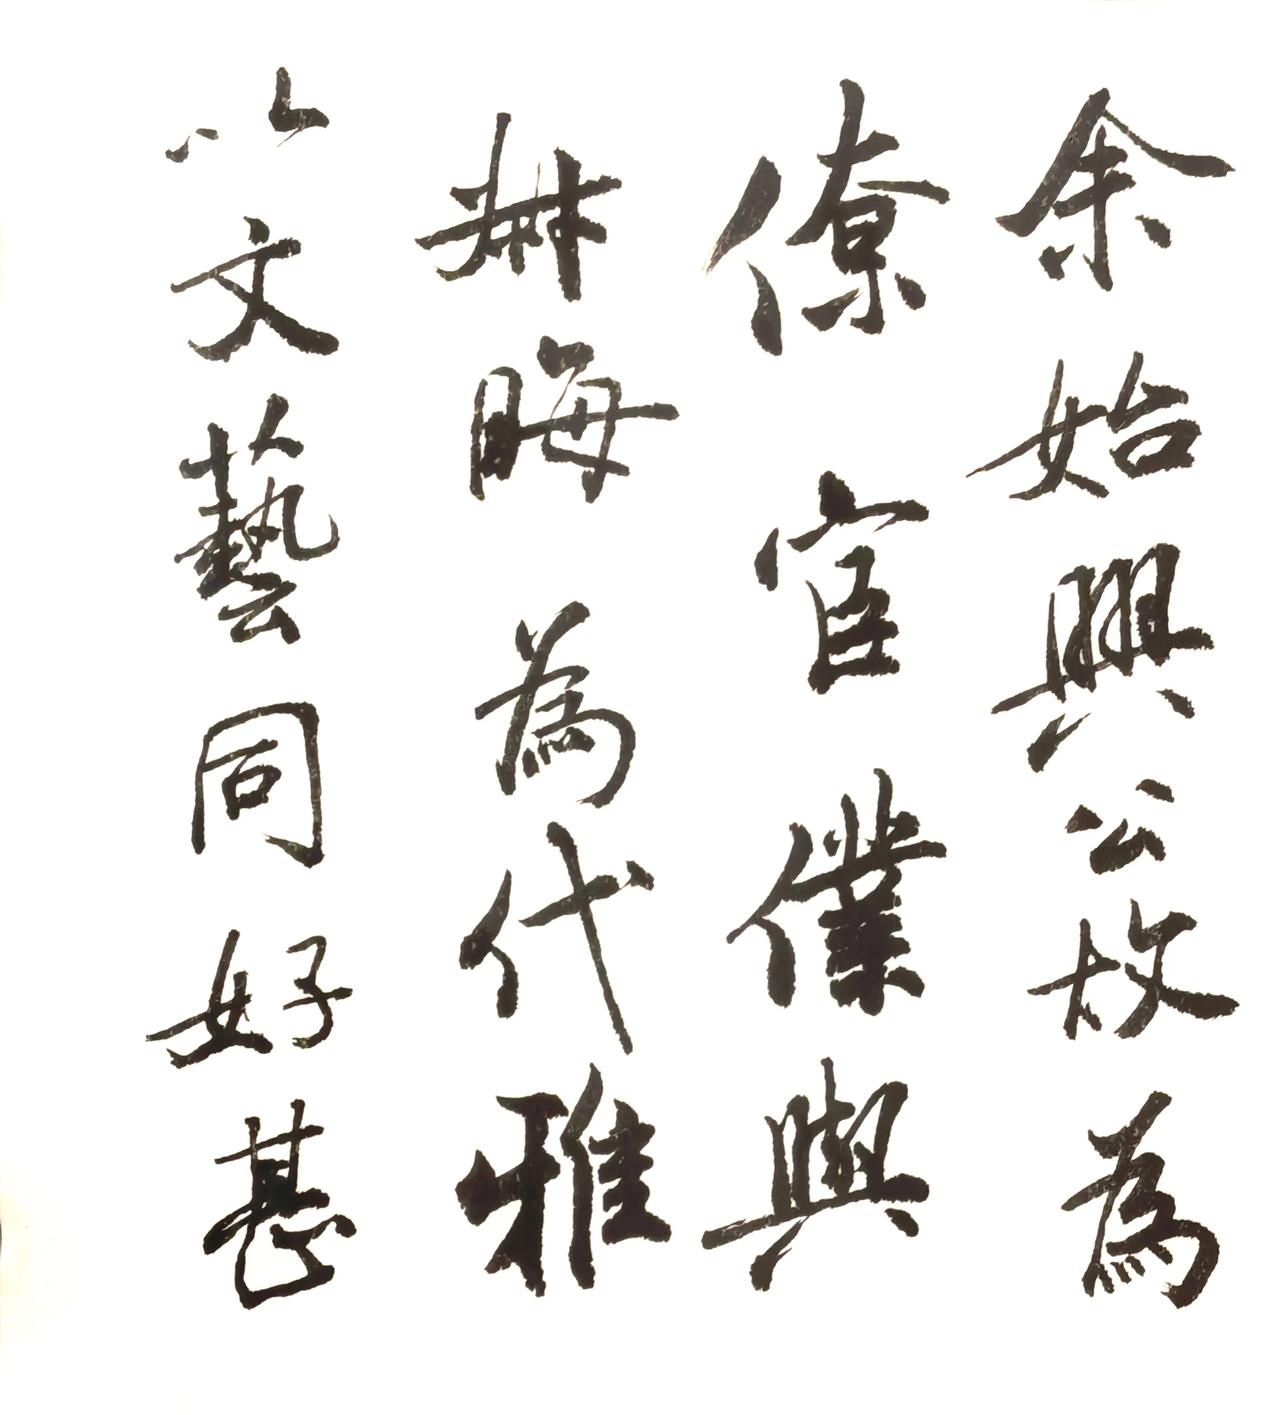 余始興公故為
僚宦僕與
叔晦為代雅
以文藝同好甚